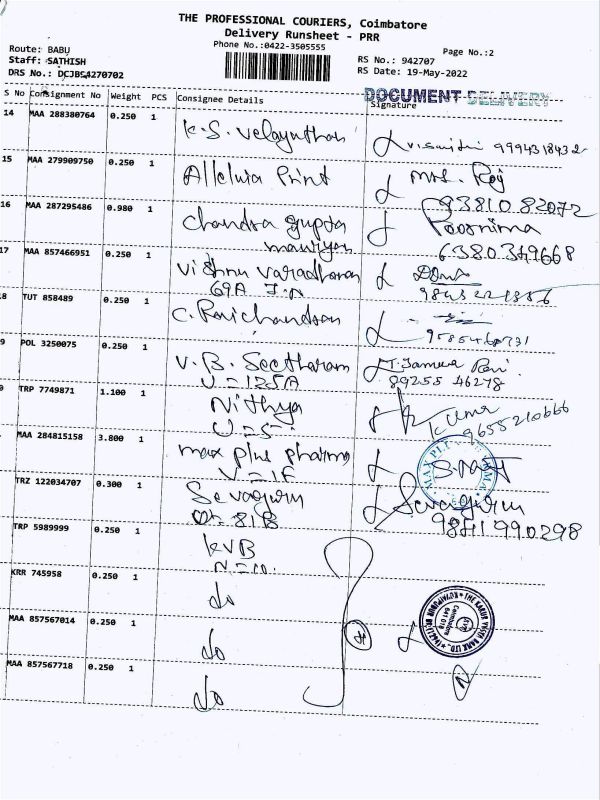 THE PROFESSIONAL COURIERS, Coimbatore
Delivery Runsheet - PRR
Phone No.:0422-3505555
Page No.:2
Route: BABU
Staff: SATHISH
DRS No.: DCJBS4270702
RS No.: 942707
RS Date: 19-May-2022
DOCUMENT DELIVERY
S No Consignment No Weight PCS Consignee Details Signature
14 MAA 288380764 0.250 1 K.S. Velayuthan 9994318432
15 MAA 279909750 0.250 1 Alleluia Print Mrs. Roj
93810 82072
16 MAA 287295486 0.980 1 Chandra gupta Poornima
6380349668
17 MAA 857466951 0.250 1 Vishnu Varadharan
69A
TUT 858489 0.250 1 C. Ravichandran
POL 3250075 0.250 1 V.B. Seetharam
U=125A 89255 46278
TRP 7749871 1.100 1 Nithya Kuma
U=5 9655210666
MAA 284815158 3.800 1 max plus pharma
V=1F
TRZ 122034707 0.300 1 Sevaguru Sevagurm
81B
TRP 5989999 0.250 1 KVB
KRR 745958 0.250 1 do
MAA 857567014 0.250 1 do
MAA 857567718 0.250 1 do